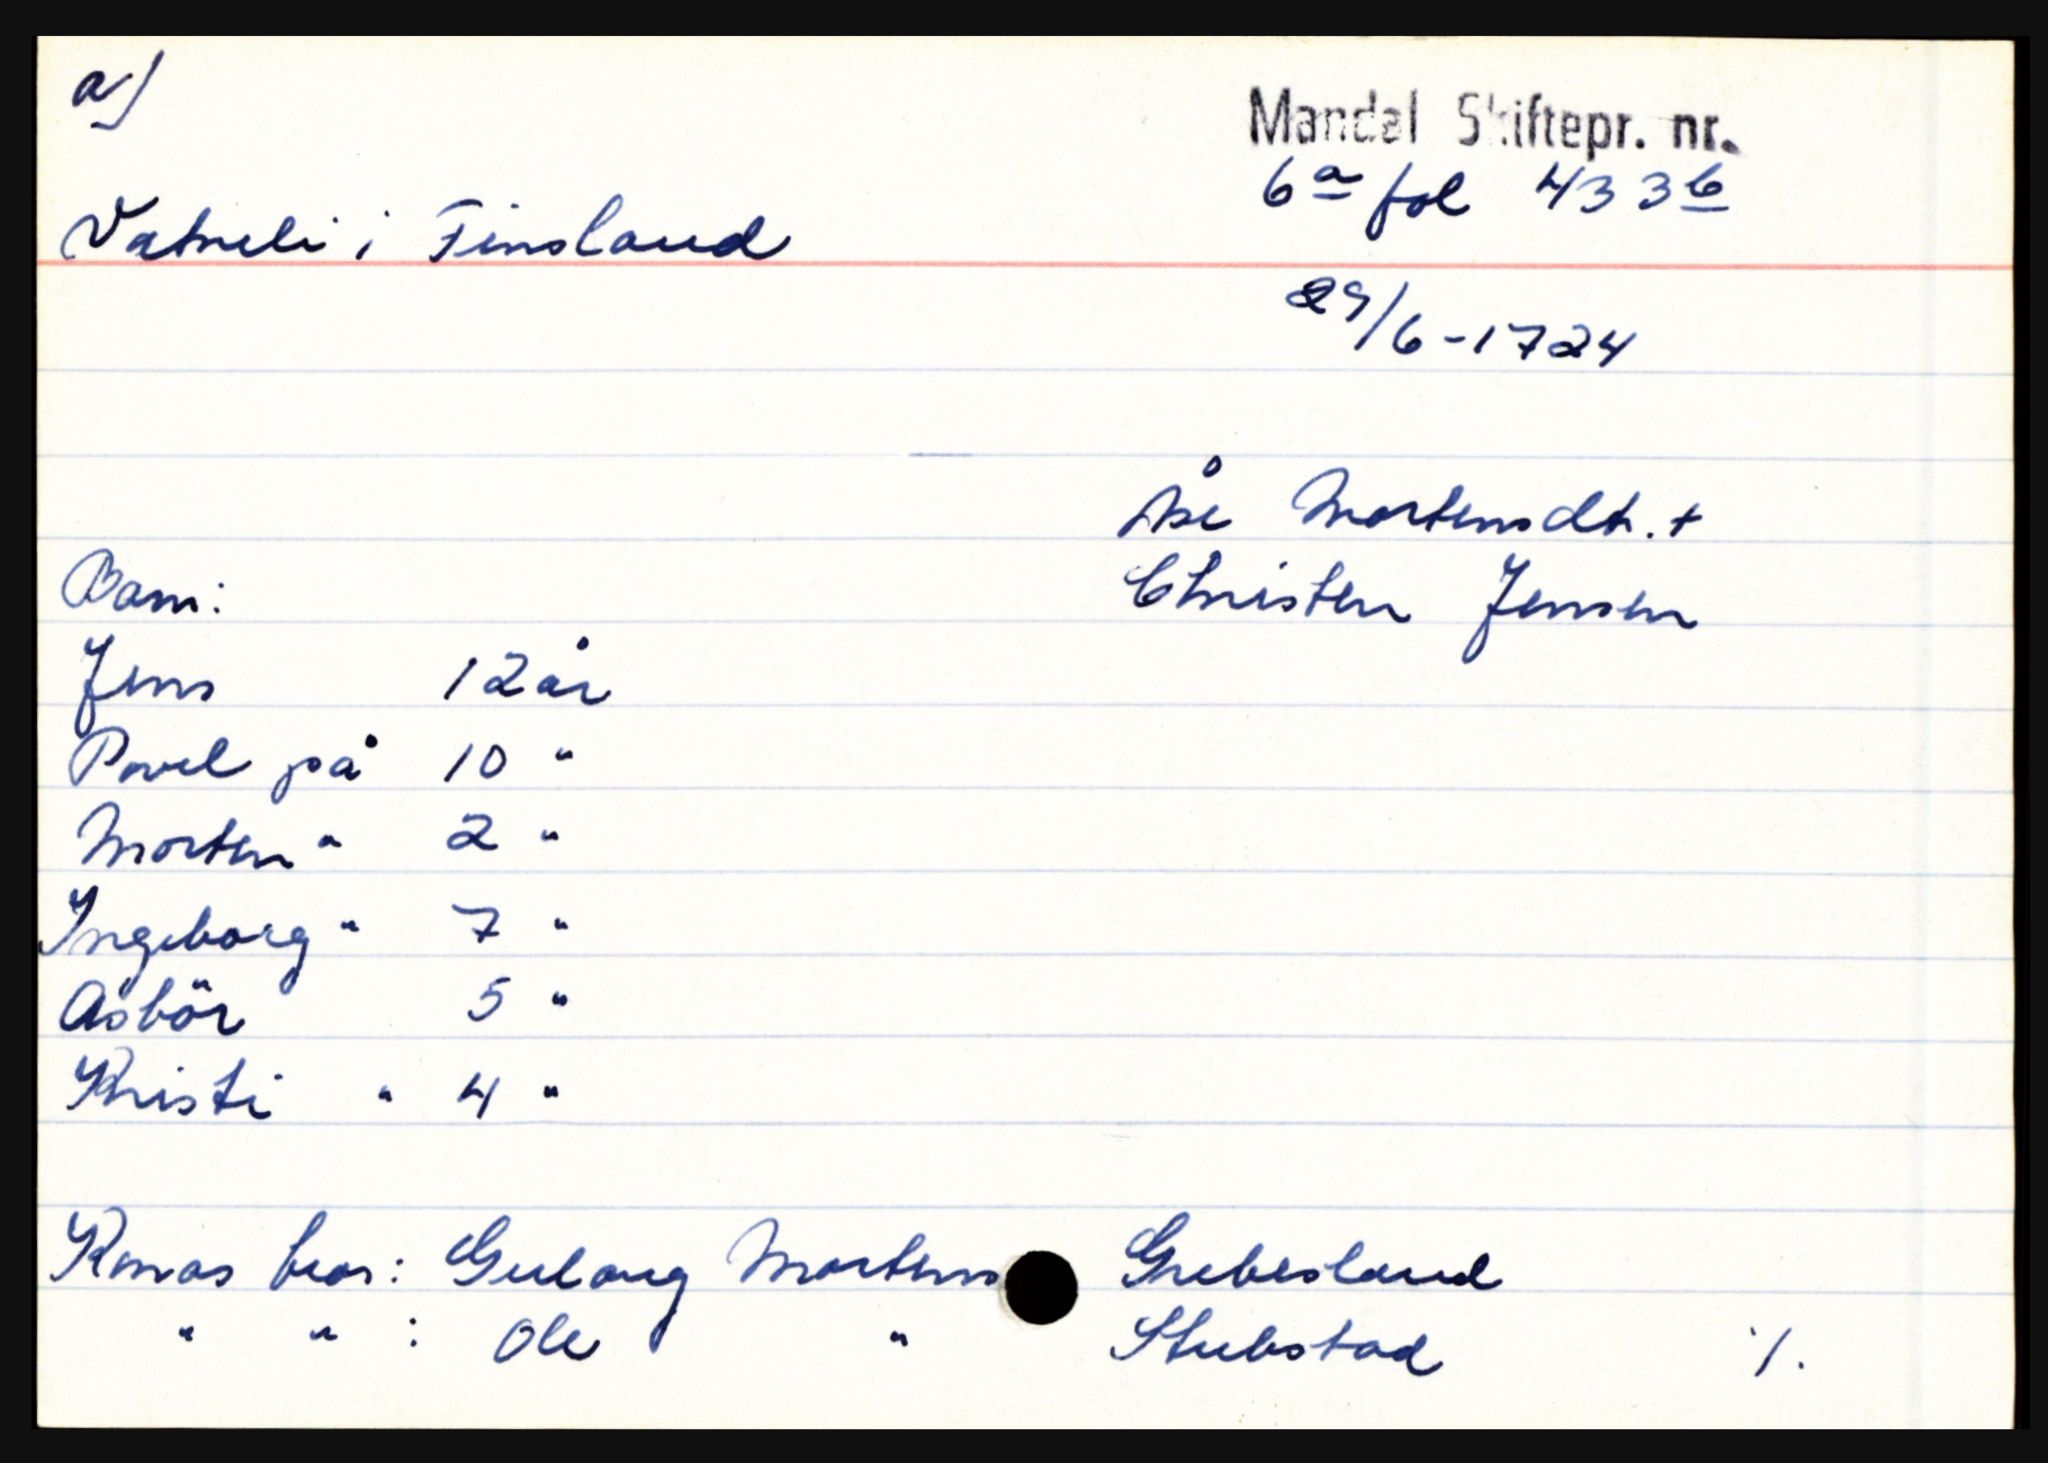 a)
Mandal Skiftepr. nr.
6a fol 433b
Vatneli i Finsland
29/6-1724
Åse Mortensdtr. +
Barn:
Christen Jensen
Jens 12 år
Povel på 10 "
Morten " 2 "
Ingeborg " 7 "
Asbör 5 "
Kristi " 4 "
Konas bror: Gulaug Mortens Grebesland
" " : Ole " Stubstad ./.